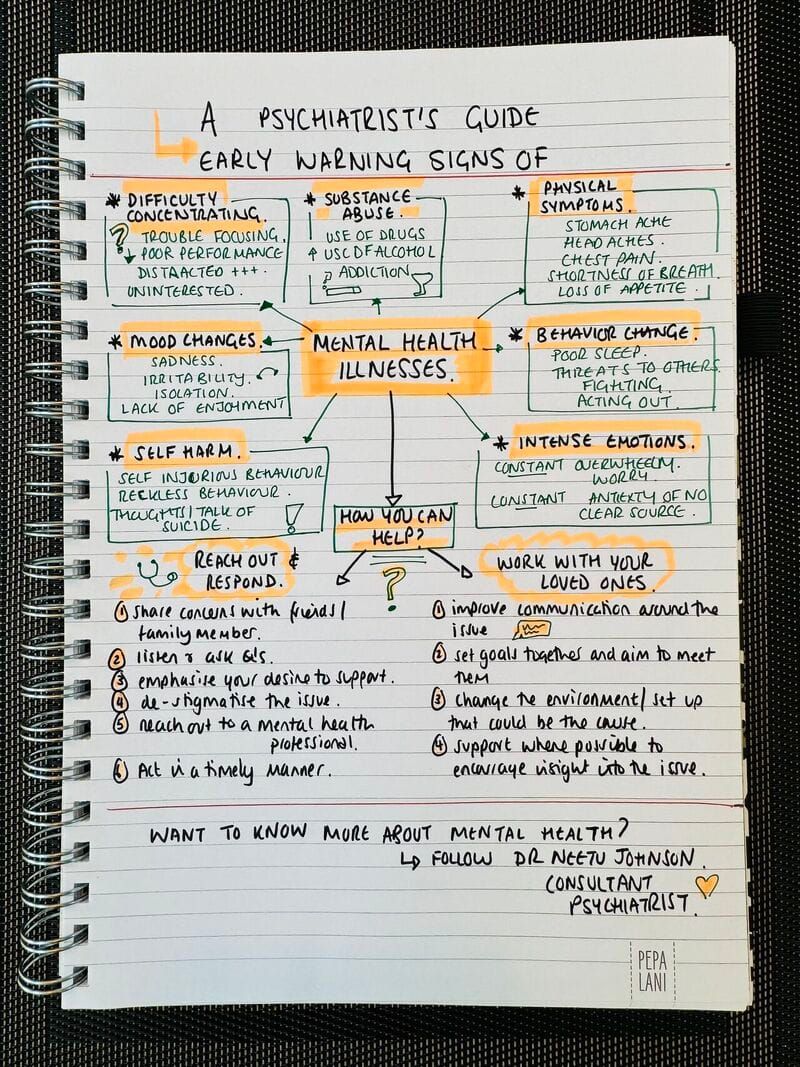 A PSYCHIATRIST'S GUIDE
EARLY WARNING SIGNS OF
* DIFFICULTY
CONCENTRATING.
? TROUBLE FOCUSING.
↓ POOR PERFORMANCE
DISTRACTED +++.
UNINTERESTED.
* SUBSTANCE
ABUSE.
USE OF DRUGS
↑ USE OF ALCOHOL
ADDICTION
* PHYSICAL
SYMPTOMS.
STOMACH ACHE
HEAD ACHES.
CHEST PAIN.
SHORTNESS OF BREATH.
LOSS OF APPETITE.
* MOOD CHANGES.
SADNESS.
IRRITABILITY.
ISOLATION.
LACK OF ENJOYMENT
MENTAL HEALTH
ILLNESSES.
* BEHAVIOR CHANGE.
POOR SLEEP.
THREATS TO OTHERS.
FIGHTING.
ACTING OUT.
* SELF HARM.
SELF INJURIOUS BEHAVIOUR
RECKLESS BEHAVIOUR.
THOUGHTS/TALK OF
SUICIDE. !
* INTENSE EMOTIONS.
CONSTANT OVERWHELM.
WORRY.
CONSTANT ANTIEXTY OF NO
CLEAR SOURCE.
HOW YOU CAN
HELP?
?
REACH OUT &
RESPOND.
① share concerns with friends/
family member.
② listen & ask Q's.
③ emphasise your desire to support.
④ de-stigmatise the issue.
⑤ reach out to a mental health
professional.
⑥ Act in a timely manner.
WORK WITH YOUR
LOVED ONES.
① improve communication around the
issue
② set goals together and aim to meet
them
③ change the environment/ set up
that could be the cause.
④ support where possible to
encourage insight into the issue.
WANT TO KNOW MORE ABOUT MENTAL HEALTH?
↳ FOLLOW DR NEETU JOHNSON.
CONSULTANT
PSYCHIATRIST.
PEPA
LANI